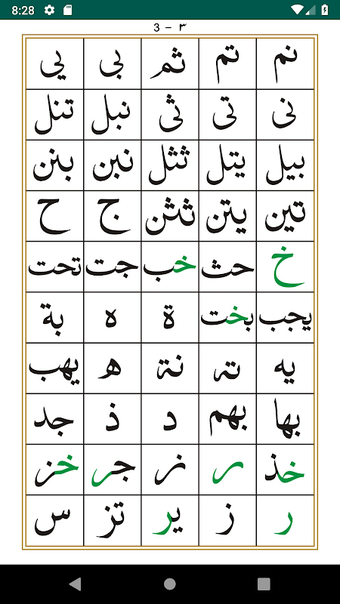 8:28
3 - ٣
نم تم ثم بى يي
نى تى ثى نبل تنل
بيل يتل ثثل نبن بنن
تين يتن ثثن ج ح
خ حث خب جت تحت
يجب بخت ة ه بة
يه ته نة ه يهب
بها بهم د ذ جد
خذ ر نر جر خز
ر ز ير تز س